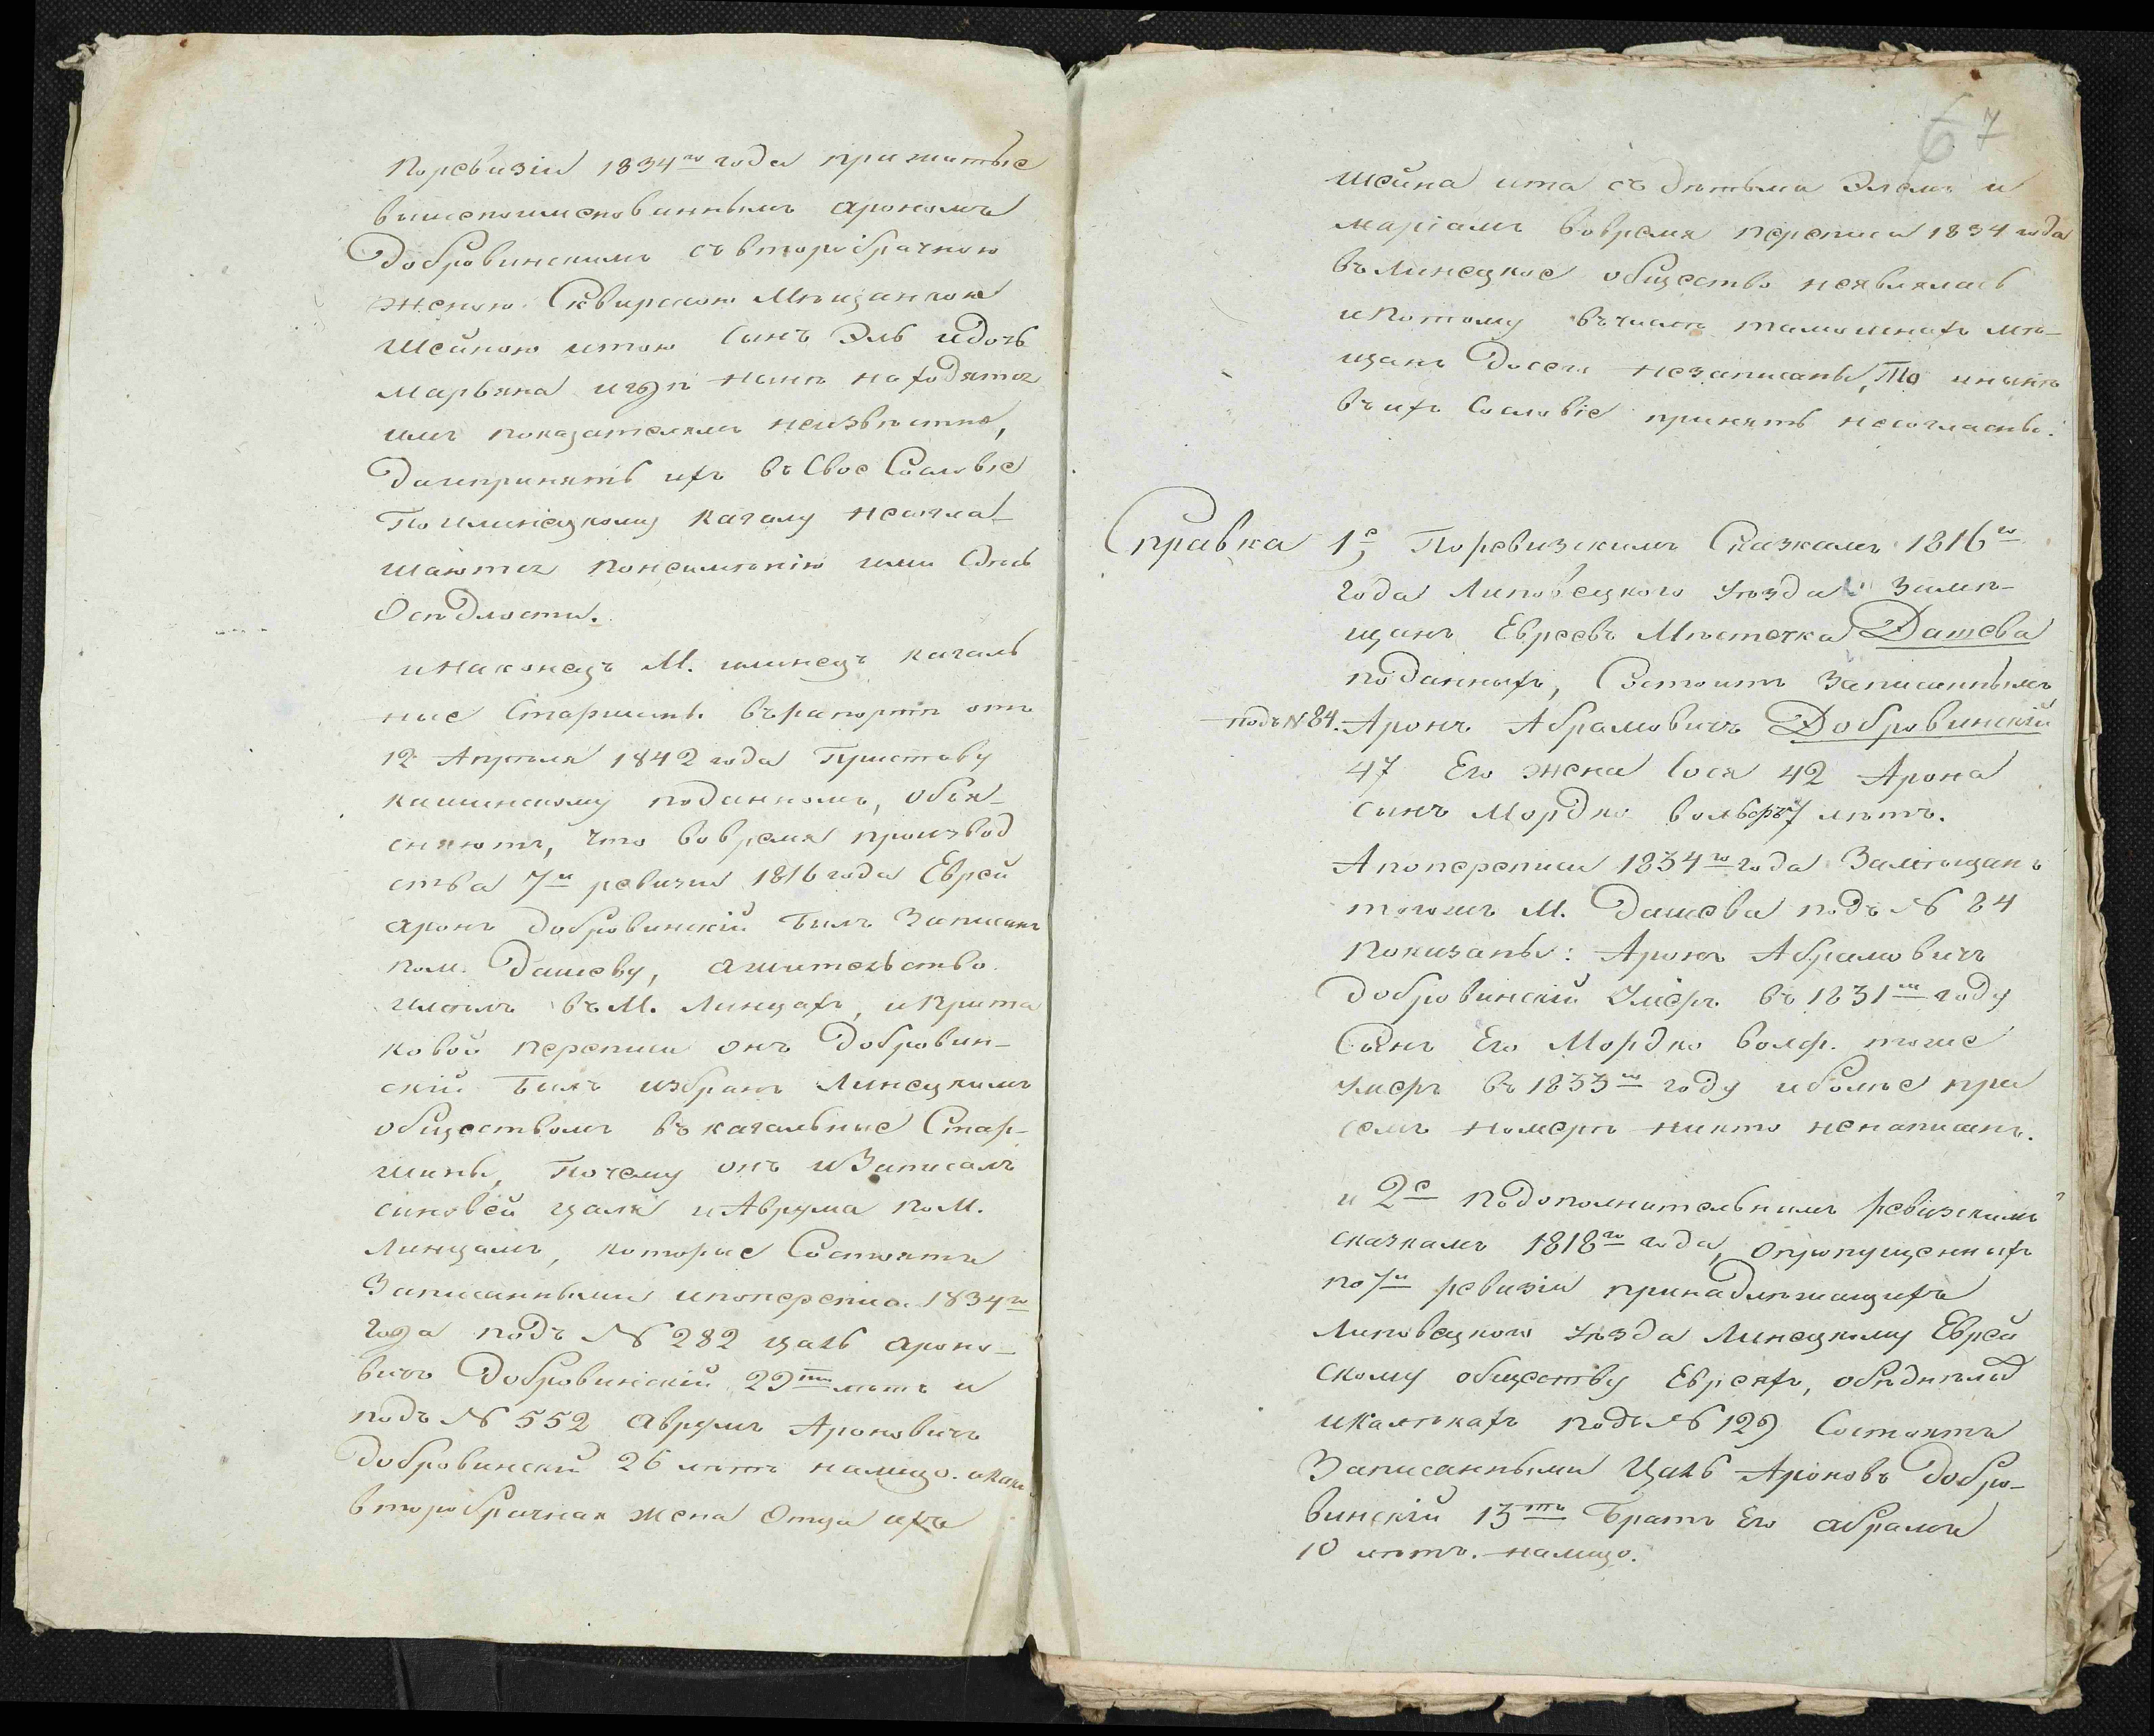 Поревизіи 1834го года прижитые
вышепоименованнымъ Арономъ
Добровинскимъ съ второбрачною
женою Сквирскою Мѣщанкою
Шейною итою Сынъ Эль идочь
Марьяна игдѣ нынѣ находятся
имъ показателямъ неизвѣстно,
Даипринять ихъ въ Свое Сословіе
По илинецкому Кагалу несогла-
шаются понеимѣнію ими Сдѣсь
Осѣдлости.
инаконецъ М. илинецъ Кагаль
ные Старшины въ рапортѣ отъ
12 Апрѣля 1842 года Приставу
поданномъ, Объя-
сняютъ, что вовремя производ
ства 7й ревизіи 1816 года Еврей
Аронъ Добровинскій былъ Записанъ
пом. Дашеву, ажительство
имѣлъ въ М. Линцахъ, иприта
ковой переписи онъ Добровин-
скій былъ избранъ Линецкимъ
обществомъ въ кагальные Стар-
шины, Почему онъ иЗаписалъ
синовей цаля иАврума поМ.
Линцамъ, которые Состоятъ
Записанными ипопереписи 1834го
года подъ № 282 цаль Ароно-
вичъ Добровинскій 29ти лѣтъ и
подъ № 552 Аврумъ Ароновичъ
Добровинскій 26 лѣтъ налицо. акакъ
второбрачная жена Отца ихъ
67
Шейна ита съ дѣтьми Элемъ и
Маріамъ вовремя переписи 1834 года
въ Линецкое общество неявлялась
ипотому въчислѣ тамошнихъ мѣ-
щанъ Досель незаписаны, То инынѣ
въ ихъ Сословіе принять несогласны.
Справка 1е, Поревизскимъ Сказкамъ 1816го
года Липовецкого уѣзда Замѣ-
щанъ Евреевъ Мѣстечка Дашева
поданныхъ, Состоитъ Записаннымъ
подъ № 84. Аронъ Абрамовичъ Добровинскій
47 Его жена Сося 42 Арона
сынъ Мордко вольфъ 7 лѣтъ.
Апопереписи 1834го года Замѣщанъ
тогожъ М. Дашева подъ № 84
Показаны: Аронъ Абрамовичъ
Добровинскій Умеръ въ 1831м году
Сынъ Его Мордко волф. тоже
умеръ въ 1833м году иболѣе при
семъ номерѣ никто ненаписанъ.
и 2е Подополнительнимъ ревизскимъ
сказкамъ 1818го года, опропущенныхъ
по7й ревизіи принадлежащихъ
Липовецкого уѣзда Линецкому Еврей
скому обществу Евреяхъ, обѣднѣлых
икалѣкахъ подъ № 129 Состоятъ
Записанными Цаль Ароновъ Добро-
винскій 13ть Братъ Его Абрамъ
10 лѣтъ. налицо.